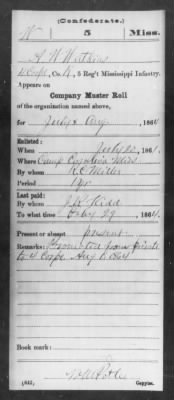 (Confederate.)
W 5 Miss.
A W Watkins
4 Corpl, Co. A, 5 Reg't Mississippi Infantry.
Appears on
Company Muster Roll
of the organization named above,
for July & Aug, 1864
Enlisted:
When July 20, 1861.
Where
By whom
Period 1 yr
Last paid:
By whom J. R. Kidd
To what time Feby 29, 1864.
Present or absent present
Remarks: Promoted from private
to 4 Corpl Aug 1 1864
Book mark:
(642)
Copyist.